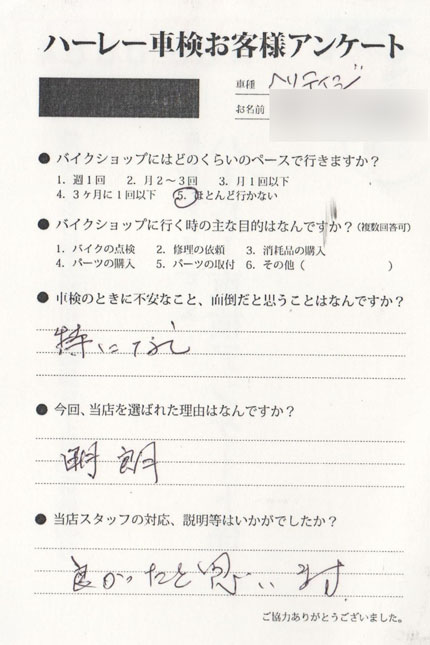 ハーレー車検お客様アンケート
車種 ヘリテイジ
お名前
● バイクショップにはどのくらいのペースで行きますか？
1. 週1回　2. 月2～3回　3. 月1回以下
4. 3ヶ月に1回以下　5. ほとんど行かない
● バイクショップに行く時の主な目的はなんですか？(複数回答可)
1. バイクの点検　2. 修理の依頼　3. 消耗品の購入
4. パーツの購入　5. パーツの取付　6. その他（　　　　　　）
● 車検のときに不安なこと、面倒だと思うことはなんですか？
特になし
● 今回、当店を選ばれた理由はなんですか？
明朗
● 当店スタッフの対応、説明等はいかがでしたか？
良かったと思います
ご協力ありがとうございました。